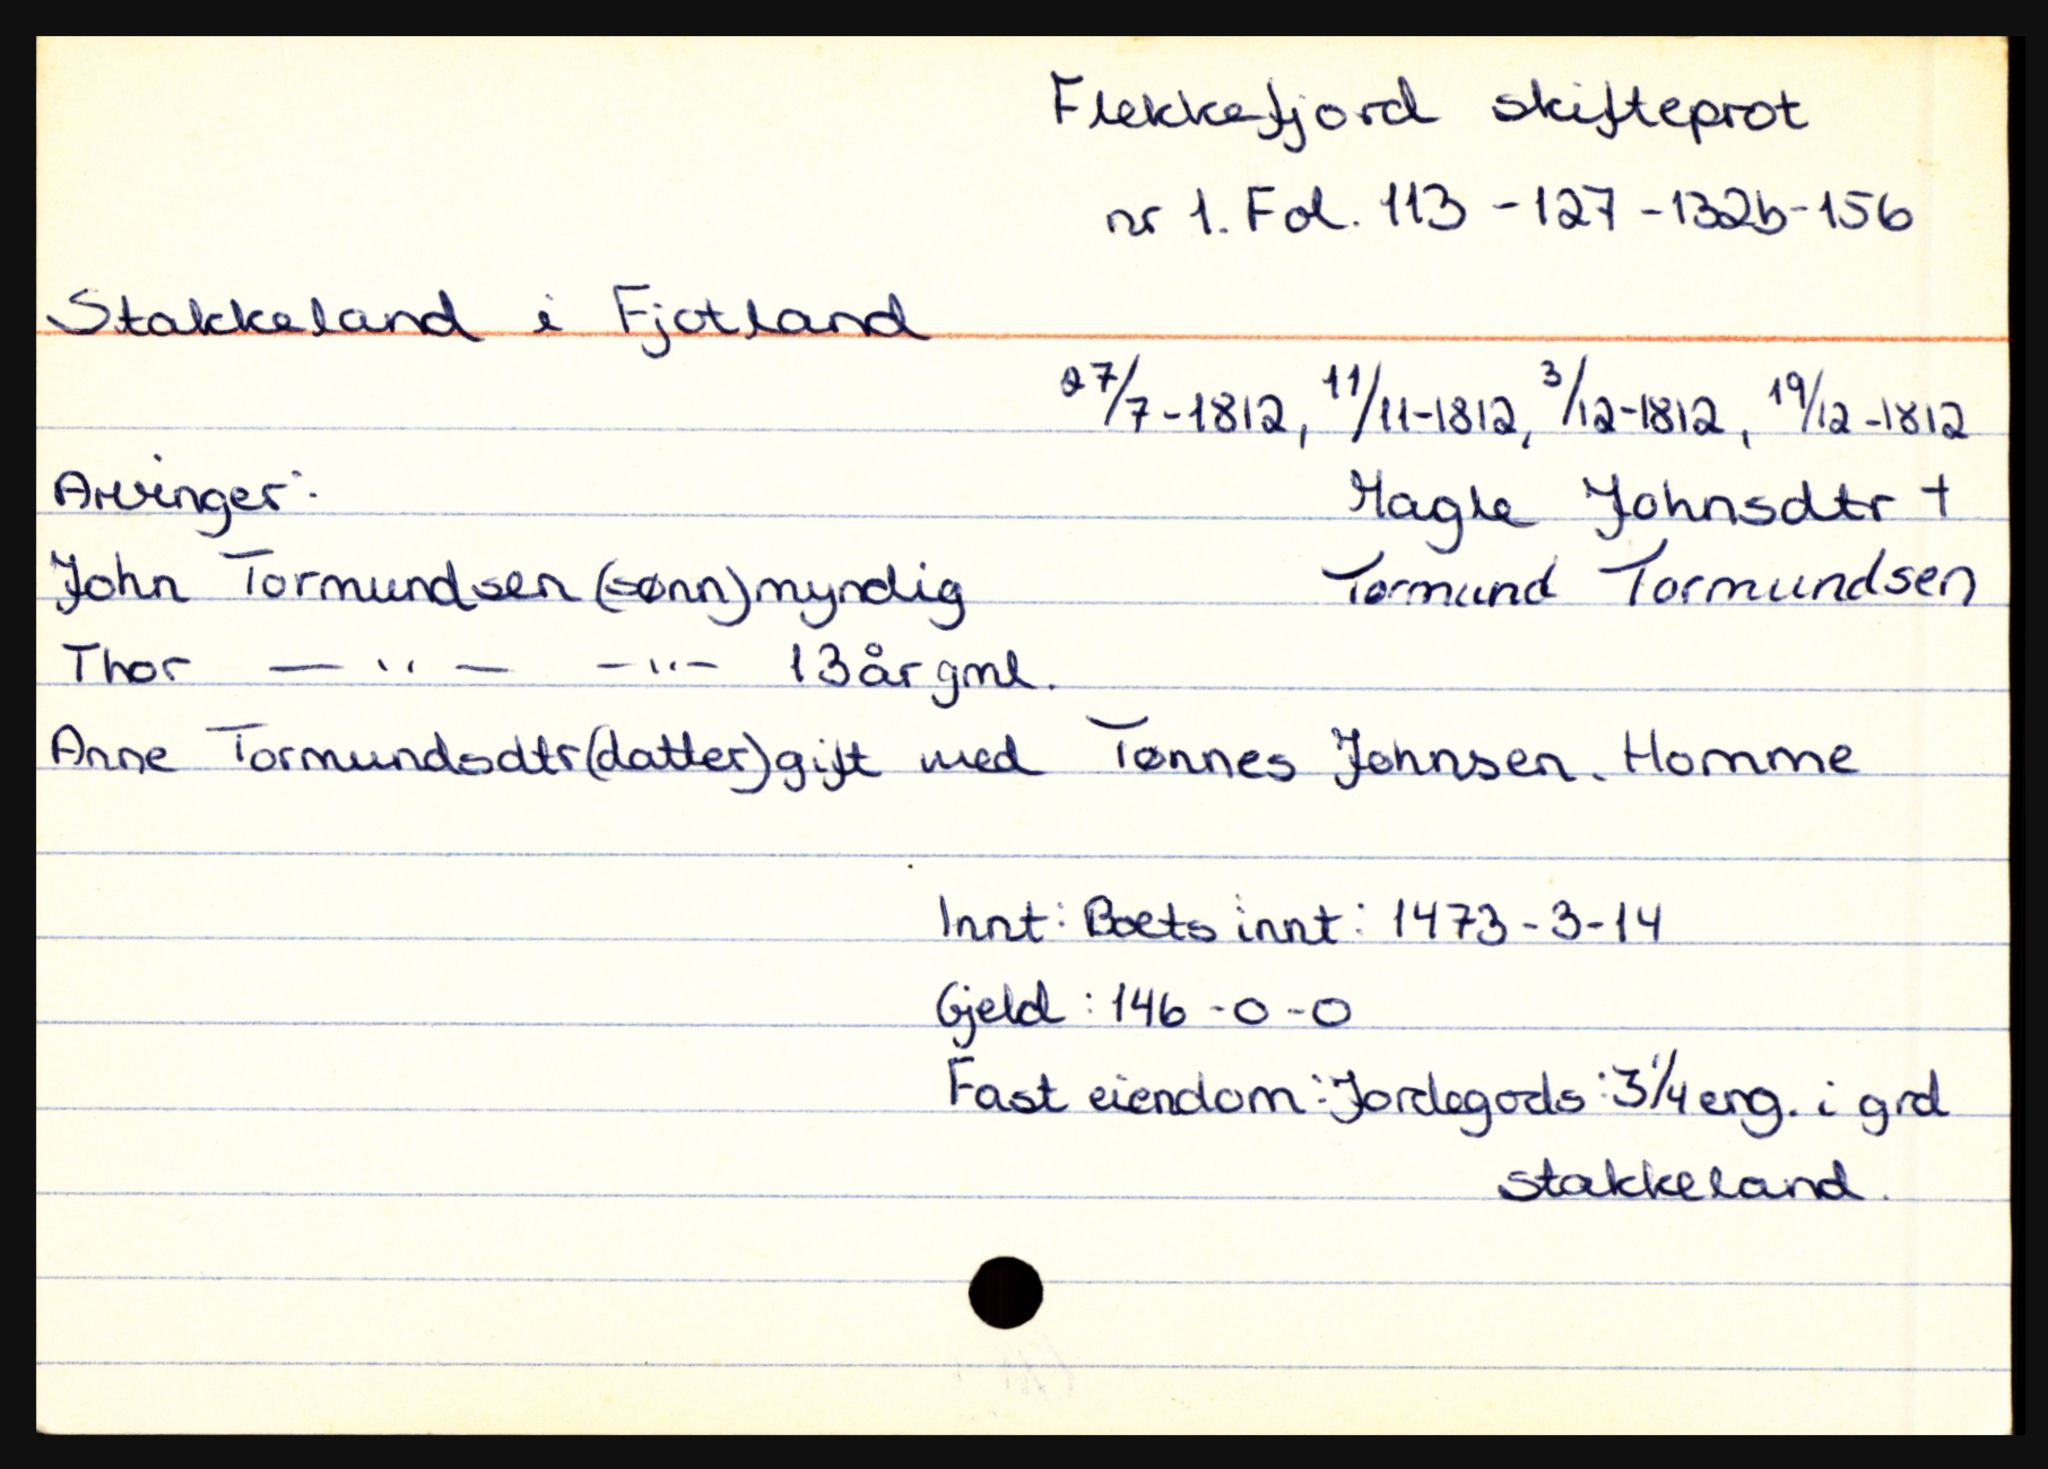 Flekkefjord skifteprot
nr 1. Fol. 113 - 127 - 132b - 156
Stakkeland i Fjotland
27/7-1812, 11/11-1812, 3/12-1812, 19/12-1812
Arvinger:
Hagle Johnsdtr +
John Tormundsen (sønn) myndig
Tormund Tormundsen
Thor — " — -"- 13 år gml.
Anne Tormundsdtr (datter) gift med Tønnes Johnsen. Homme
Innt: Boets innt: 1473-3-14
Gjeld: 146-0-0
Fast eiendom: Jordegods: 3 1/4 eng. i grd
stakkeland.